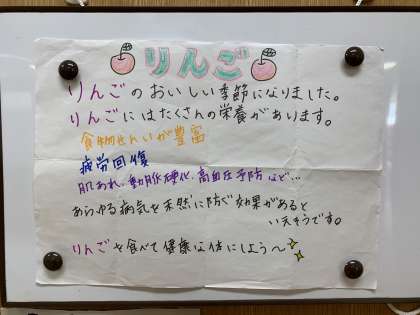 りんご
りんごのおいしい季節になりました。
りんごにはたくさんの栄養があります。
食物せんいが豊富
疲労回復
肌あれ、動脈硬化、高血圧予防など…
あらゆる病気を未然に防ぐ効果があると
いえそうです。
りんごを食べて健康な体にしよう〜